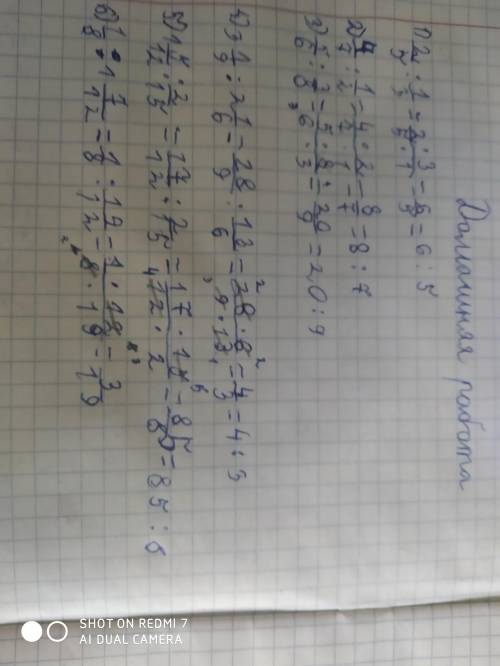 Домашняя работа
1) 2/5 : 1/3 = 2·3/5·1 = 6/5 = 6 : 5
2) 4/7 : 1/2 = 4·2/7·1 = 8/7 = 8 : 7
3) 5/6 : 3/8 = 5·8/6·3 = 20/9 = 20 : 9
4) 3 1/9 : 2 1/6 = 28/9 : 13/6 = = 4/3 = 4 : 3
5) : 2/15 = 17/12 : 2/15 = = = 85 :
6) 1/8 : 1 7/12 = 1/8 : 19/12 = 1·12/8·19 = 3/19
SHOT ON REDMI 7
AI DUAL CAMERA